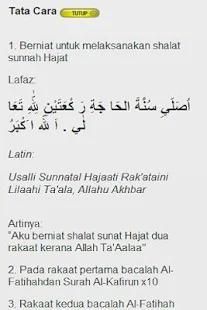 Tata Cara TUTUP
1. Berniat untuk melaksanakan shalat
sunnah Hajat
Lafaz:
اُصَلِّي سُنَّةَ الْحَا جَةِ رَ كْعَتَيْنِ لِلّٰهِ تَعَا
لٰي . اَ للّٰه اَكْبَرُ
Latin:
Usalli Sunnatal Hajaati Rak'ataini
Lilaahi Ta'ala, Allahu Akhbar
Artinya:
"Aku berniat shalat sunat Hajat dua
rakaat kerana Allah Ta'Aalaa"
2. Pada rakaat pertama bacalah Al-
Fatihahdan Surah Al-Kafirun x10
3. Rakaat kedua bacalah Al-Fatihah